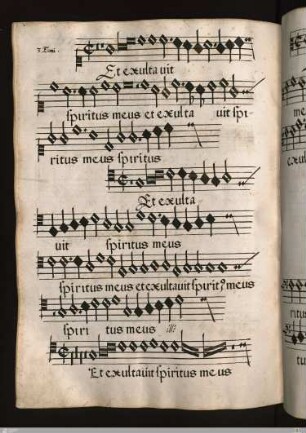 Et exulta vit
spiritus meus et exulta vit spi-
ritus meus spiritus
Et exulta
vit spiritus meus
spiritus meus et exultavit spirit9 meus
spiri tus meus
Et exultavit spiritus meus
ritus
tus